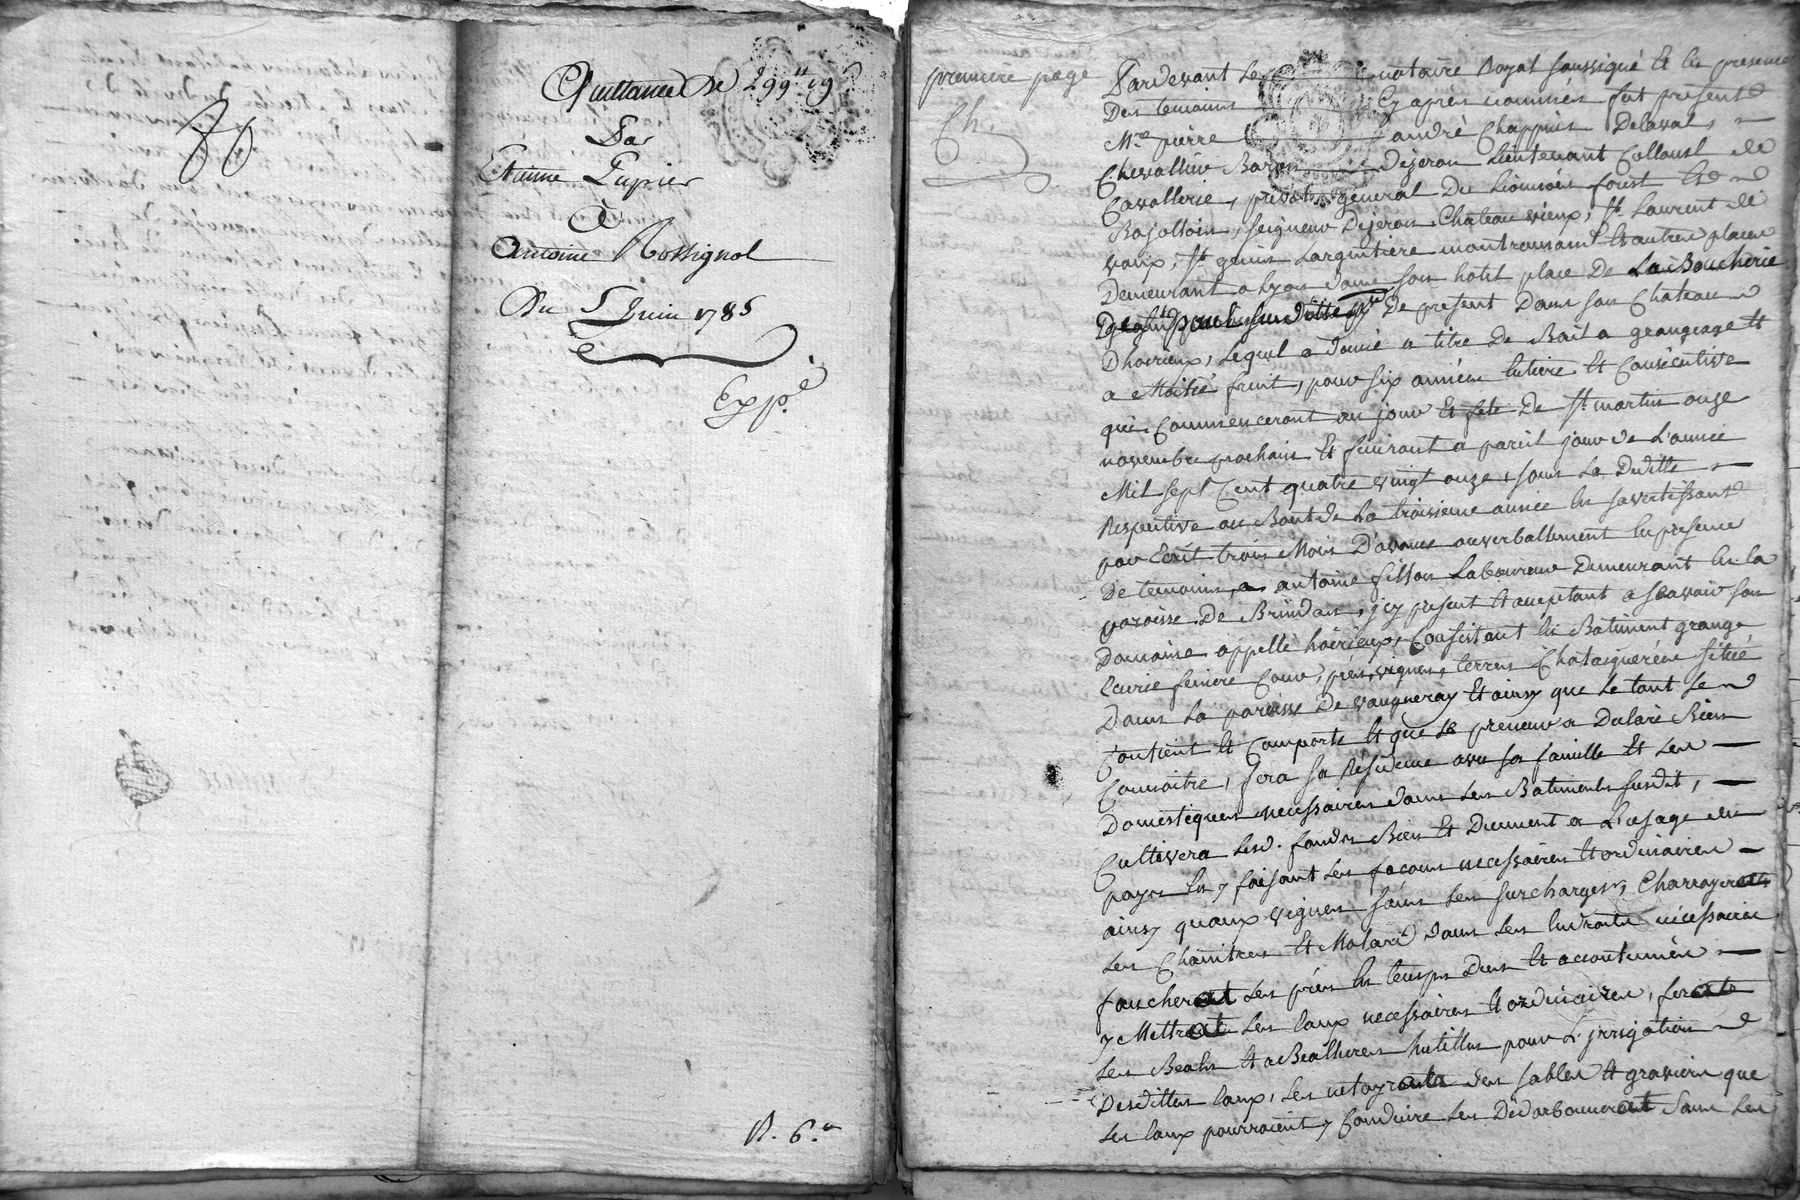 80
Quittance de 299ᵗᵗ 19ˢ
Par
Etienne Pupier
à
Antoine Rossignol
Du 5 Juin 1785
Expᵉ
R. 6.
premiere page
Ch.
Pardevant Le notaire Royal soussigné Et En presence
Des temoins Cy après nommés fut present
Mʳᵉ pierre andré Chappuis Delaval,
Chevallier Baron Dizeron Lieutenant Collonel de
Cavallerie, prevot general Du Lionnois forest Et
Baujollois, seigneur Dizeron Chateau vieux, Sᵗ Laurent de
vaux, Sᵗ genis Largentiere montromand Et autres places
Demeurant a Lyon dans son hotel place De La Boucherie
De present Dans son Chateau
Dhoirieux, Lequel a donné a titre De Bail a grangeage Et
a Moitié fruit, pour six années Entiere Et Consecutive
qui Commenceront au jour Et fete De Sᵗ martin onze
novembre prochain Et finiront a pareil jour de L'année
Mil sept Cent quatre vingt onze, sous La Deditte
Respective au Bout de La troisieme année En savertissant
par Ecrit trois Mois D'avance ou verballement En presence
De temoins, a antoine fillon Laboureur Demeurant En la
paroisse De Brindas, icy present Et acceptant a scavoir son
Domaine appellé hoirieux, Consistant En Batiment grange
Ecurie feniere Cour, prés, vignes, terres Chataigneréés sitüé
Dans La paroisse De vaugneray Et ainsy que Le tout se
Contient Et Comporte Et que Le preneur a Declaré Bien
Connoitre, fera sa Residence avec sa famille Et Les
Domestiques necessaires dans Les Batiments susdit,
Cultivera Lesd. fonds Bien Et Duement a L'usage du
payis En y faisant Les facons necessaires Et ordinaires
ainsy quaux vignes sans Les surcharger, Charroyera
Les Chaintres Et Molard dans Les Endroits necessaires
fauchera Les prés En temps Dus Et accoutumés
y Mettra Les Eaux necessaires Et ordinaires, fera
Les Beals Et aBealleres hutilles pour L'irrigation
Desdittes Eaux, Les netoyera des sables Et graviers que
Les Eaux pourroient y Conduire Les Dédarbounera Dans Les